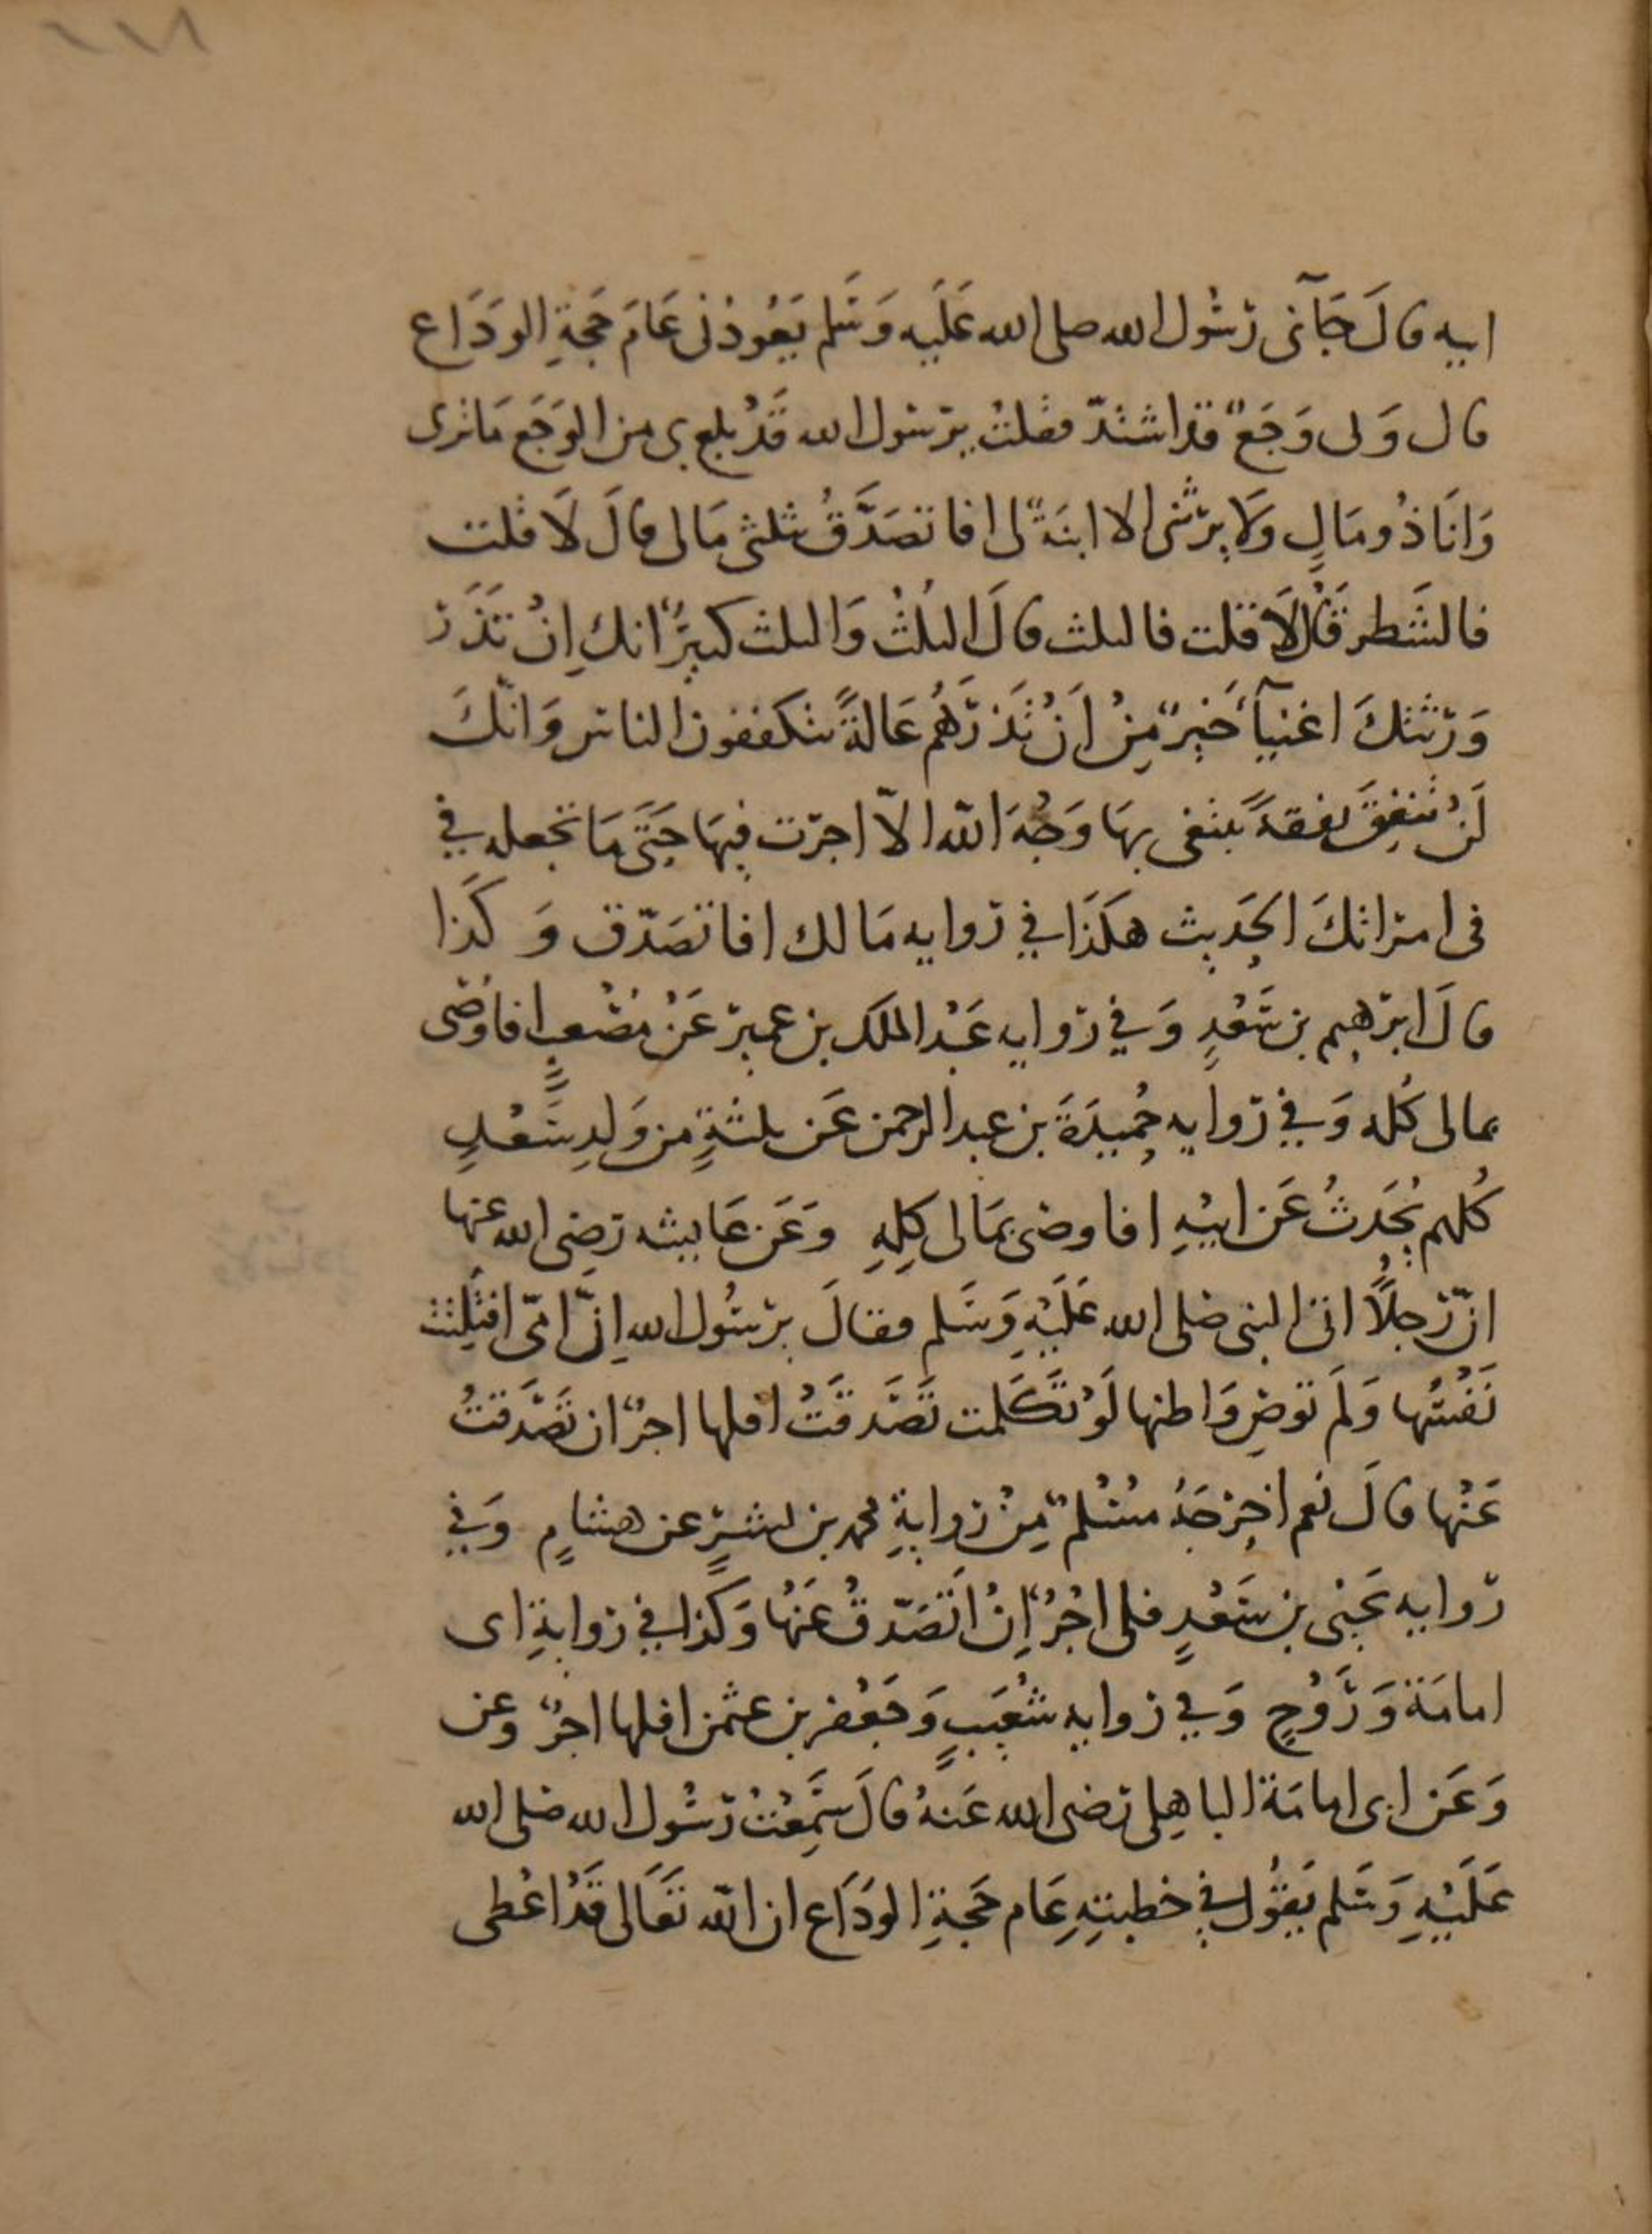 ابيه قالَ جَآنى رسُول الله صلى الله عَلَيه وَسَلم يَعُودُنى عَامَ حَجَةِ الودَاع
قال وَلى وَجَعٌ قد اشتدّ فقلتُ يرسُول الله قَدْ بلغ بى من الوَجَع مَا ترى
وَانَا ذُو مَالٍ وَلا يرثنى الا ابنَةٌ لى افا تصَدَّقُ بثلثى مَالى قالَ لَا قلت
فالشَطر قَالَ لَا قلت فالثلث قالَ الثلثُ وَالثلث كبيرٌ انك اِنْ تَذَر
وَرثتكَ اغنيآءَ خَيرٌ مِنْ اَنْ تَذرَهُم عَالةً يتكففون الناس وَانّكَ
لَنْ تُنفِقَ نفقةً تبتغى بهَا وَجْهَ الله الّا اجرت فيهَا حَتَى مَا تجعله في
فى امراتكَ الحَديث هكَذَا في روايه مَالك افا تصَدّق وَكَذا
قالَ ابرهيم بن سَعْدٍ وَفي روايه عَبْد الملك بن عمير عَنْ مُصْعبٍ افاوُصى
بمالى كُله وَفي روايه حُميدَةَ بن عبد الرحمن عَن ثلثةٍ من وَلدِ سَعْدٍ
كُلهم يُحَدثُ عَن ابيْهِ افاوصى بمَالى كلِهِ وَعَن عَايشه رضى الله عنها
انّ رَجُلًا اتى النبى صلى الله عَلَيْهِ وَسَلم فقالَ يرسُول الله اِنَّ امّى افتُلِتَتْ
نَفْسُهَا وَلَم توصِ وَاظنها لَوْ تَكَلمت تَصَدقَتْ افلها اجرٌ ان تَصَدقتُ
عَنْها قالَ نعم اخرجَهُ مسْلمٌ مِنْ روايةِ محمد بن بشرٍ عن هشامٍ وَفي
روايه يَحيٰى بن سَعْدٍ فلى اجْرٌ اِنْ اتَصَدّقْ عَنهَا وَكَذا في روايةِ اى
امامَة وَرَوْحٍ وَفي روايه شُعَيبٍ وَجَعْفر بن عثمن افلها اجرٌ وعن
وَعَن ابى امامَة الباهِلى رضى الله عَنهُ قالَ سَمِعْتُ رسُول الله صلى الله
عَلَيْهِ وَسَلم يَقُول في خطبتِهِ عَام حَجَةِ الودَاع ان الله تعَالى قَدْ اعْطى